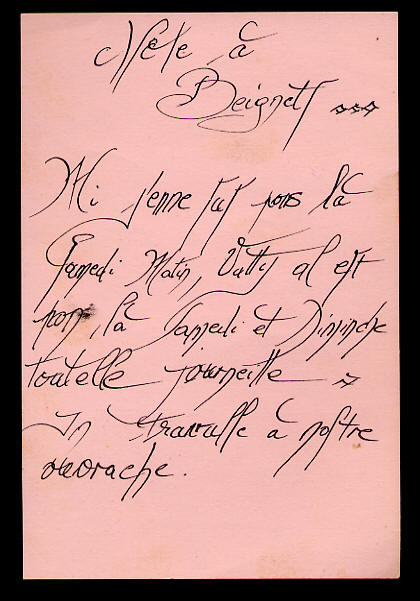 Nete à
Beignets
Mi j'enne sus pons là
Samedi Matin, Vatty al est
pons là Samedi et Diminche
toutelle journeille
In travalle à nostre